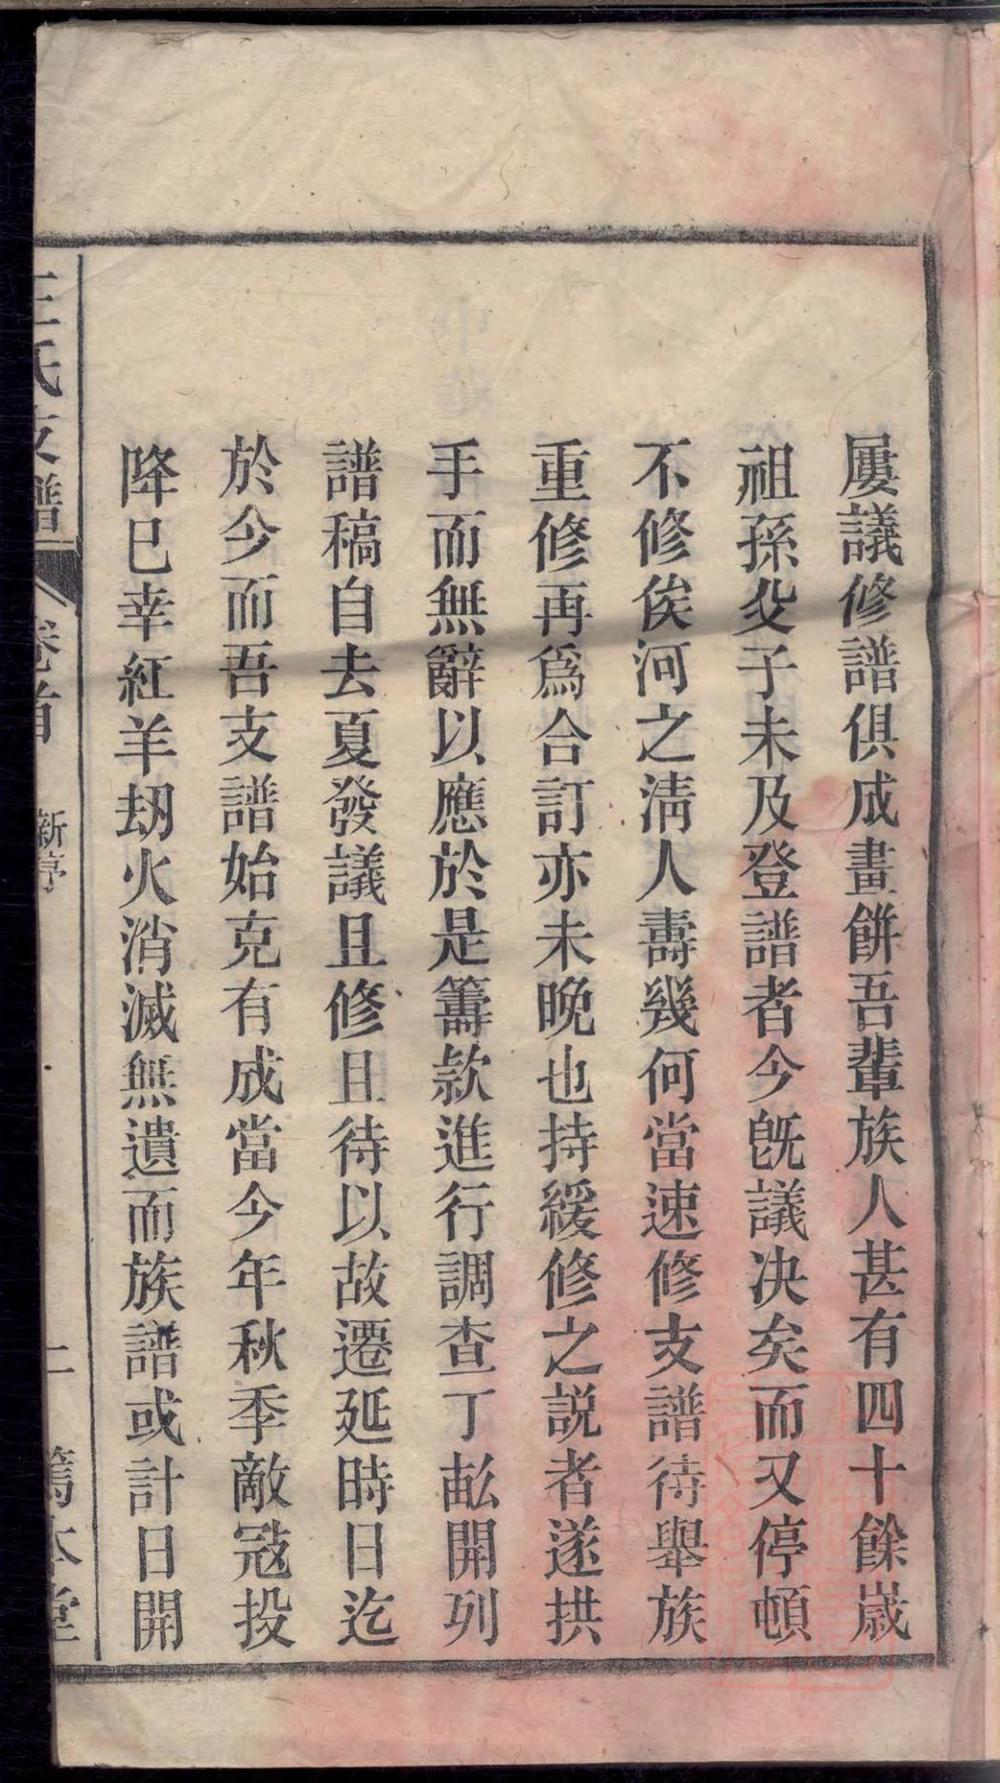 屢議修譜俱成畫餅吾輩族人甚有四十餘嵗
祖孫父子未及登譜者今旣議决矣而又停頓
不修俟河之淸人壽幾何當速修支譜待舉族
重修再爲合訂亦未晚也持緩修之説者遂拱
手而無辭以應於是籌款進行調查丁𠛬開列
譜稿自去夏發議且修且待以故遷延時日迄
於今而吾支譜始克有成當今年秋季敵冦投
降已幸紅羊刼火消滅無遺而族譜或計日開
王氏支譜 卷首 新序 二 篤本堂